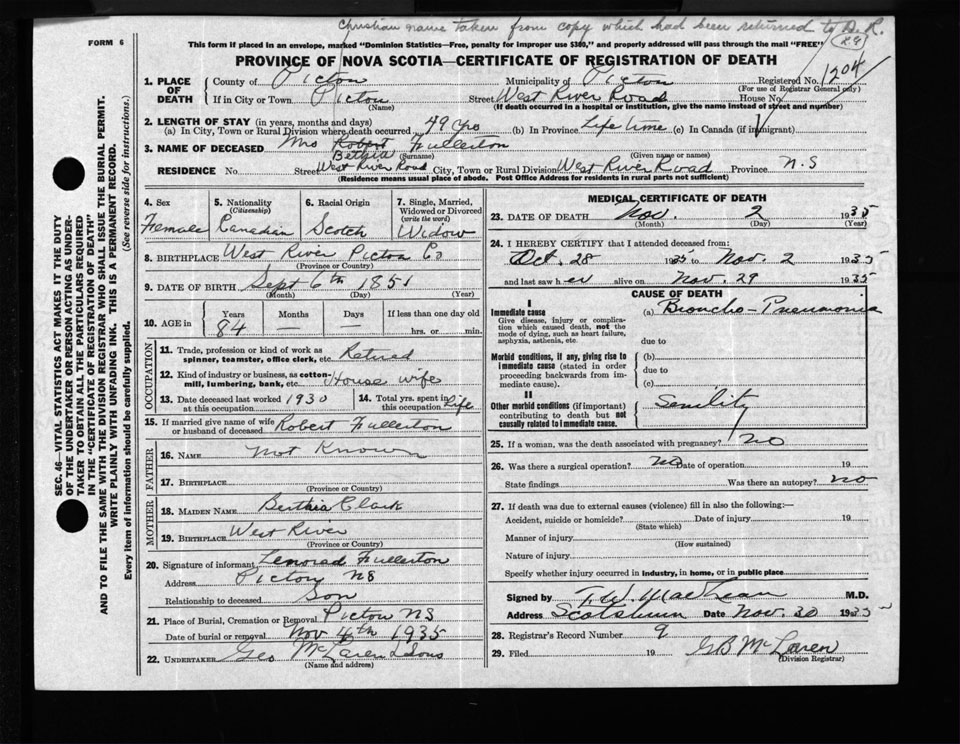 Christian name taken from copy which had been returned to D.R.
FORM 6
This form if placed in an envelope, marked "Dominion Statistics—Free, penalty for improper use $300," and properly addressed will pass through the mail "FREE"
PROVINCE OF NOVA SCOTIA—CERTIFICATE OF REGISTRATION OF DEATH
1. PLACE OF DEATH County of Pictou Municipality of Pictou Registered No. 1204
(For use of Registrar General only)
If in City or Town Pictou Street West River Road House No.
(Name) (If death occurred in a hospital or institution, give the name instead of street and number)
2. LENGTH OF STAY (in years, months and days)
(a) In City, Town or Rural Division where death occurred 49 yrs (b) In Province Life time (c) In Canada (if immigrant)
3. NAME OF DECEASED Mrs Robert Fullerton
Bethia (Surname) (Given name or names)
RESIDENCE No. Street West River Road City, Town or Rural Division West River Road Province N.S
(Residence means usual place of abode. Post Office Address for residents in rural parts not sufficient)
4. Sex Female
5. Nationality (Citizenship) Canadian
6. Racial Origin Scotch
7. Single, Married, Widowed or Divorced (write the word) Widow
8. BIRTHPLACE West River Pictou Co
(Province or Country)
9. DATE OF BIRTH Sept 6th 1851
(Month) (Day) (Year)
10. AGE in Years 84 Months — Days — If less than one day old hrs. or min.
OCCUPATION
11. Trade, profession or kind of work as spinner, teamster, office clerk, etc. Retired
12. Kind of industry or business, as cotton-mill, lumbering, bank, etc. House wife
13. Date deceased last worked at this occupation 1930 14. Total yrs. spent in this occupation Life
15. If married give name of wife or husband of deceased Robert Fullerton
FATHER
16. NAME Not Known
17. BIRTHPLACE
(Province or Country)
MOTHER
18. MAIDEN NAME Berthia Clark
19. BIRTHPLACE West River
(Province or Country)
20. Signature of informant Fullerton
Address Pictou NS
Relationship to deceased Son
21. Place of Burial, Cremation or Removal Pictou NS
Date of burial or removal Nov 4th 1935
22. UNDERTAKER Geo McLaren & Sons
(Name and address)
MEDICAL CERTIFICATE OF DEATH
23. DATE OF DEATH Nov. 2 1935
(Month) (Day) (Year)
24. I HEREBY CERTIFY that I attended deceased from:
Oct. 28 1935 to Nov. 2 1935
and last saw her alive on Nov. 29 1935
CAUSE OF DEATH
I
Immediate cause
Give disease, injury or complication which caused death, not the mode of dying, such as heart failure, asphyxia, asthenia, etc.
(a) Broncho-Pneumonia
due to
Morbid conditions, if any, giving rise to immediate cause (stated in order proceeding backwards from immediate cause).
(b)
due to
(c)
II
Other morbid conditions (if important) contributing to death but not causally related to immediate cause.
Senility
25. If a woman, was the death associated with pregnancy? No
26. Was there a surgical operation? No Date of operation 19
State findings Was there an autopsy? No
27. If death was due to external causes (violence) fill in also the following:—
Accident, suicide or homicide? Date of injury 19
(State which)
Manner of injury
(How sustained)
Nature of injury
Specify whether injury occurred in industry, in home, or in public place
Signed by T.W. MacLean M.D.
Address Scotsburn Date Nov. 30 1935
28. Registrar's Record Number 9
29. Filed 19 GB McLaren
(Division Registrar)
SEC. 46—VITAL STATISTICS ACT MAKES IT THE DUTY
OF THE UNDERTAKER OR PERSON ACTING AS UNDER-
TAKER TO OBTAIN ALL THE PARTICULARS REQUIRED
IN THE "CERTIFICATE OF REGISTRATION OF DEATH"
AND TO FILE THE SAME WITH THE DIVISION REGISTRAR WHO SHALL ISSUE THE BURIAL PERMIT.
WRITE PLAINLY WITH UNFADING INK. THIS IS A PERMANENT RECORD.
Every item of information should be carefully supplied. (See reverse side for instructions.)